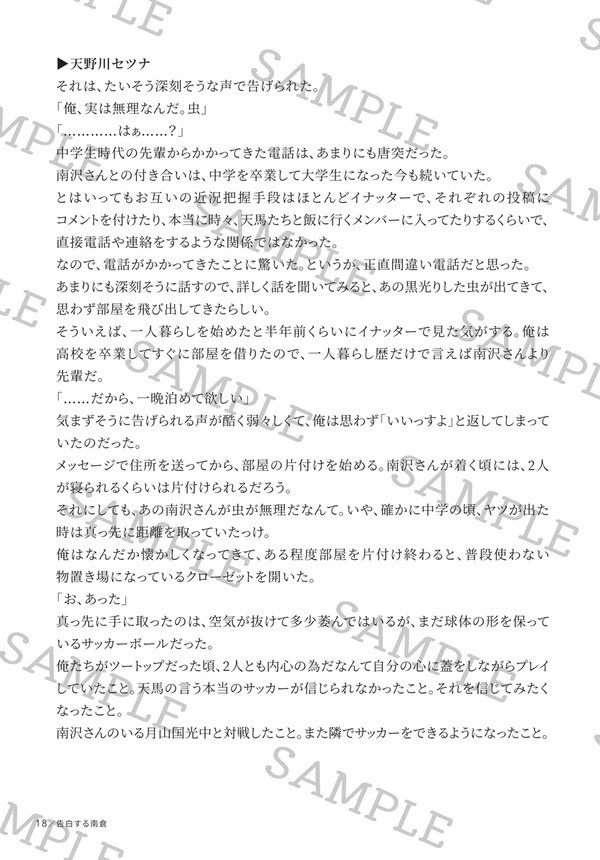 ▶天野川セツナ
それは、たいそう深刻そうな声で告げられた。
「俺、実は無理なんだ。虫」
「…………はぁ……？」
中学生時代の先輩からかかってきた電話は、あまりにも唐突だった。
南沢さんとの付き合いは、中学を卒業して大学生になった今も続いていた。
とはいってもお互いの近況把握手段はほとんどイナッターで、それぞれの投稿に
コメントを付けたり、本当に時々、天馬たちと飯に行くメンバーに入ってたりするくらいで、
直接電話や連絡をするような関係ではなかった。
なので、電話がかかってきたことに驚いた。というか、正直間違い電話だと思った。
あまりにも深刻そうに話すので、詳しく話を聞いてみると、あの黒光りした虫が出てきて、
思わず部屋を飛び出してきたらしい。
そういえば、一人暮らしを始めたと半年前くらいにイナッターで見た気がする。俺は
高校を卒業してすぐに部屋を借りたので、一人暮らし歴だけで言えば南沢さんより
先輩だ。
「……だから、一晩泊めて欲しい」
気まずそうに告げられる声が酷く弱々しくて、俺は思わず「いいっすよ」と返してしまって
いたのだった。
メッセージで住所を送ってから、部屋の片付けを始める。南沢さんが着く頃には、2人
が寝られるくらいは片付けられるだろう。
それにしても、あの南沢さんが虫が無理だなんて。いや、確かに中学の頃、ヤツが出た
時は真っ先に距離を取っていたっけ。
俺はなんだか懐かしくなってきて、ある程度部屋を片付け終わると、普段使わない
物置き場になっているクローゼットを開いた。
「お、あった」
真っ先に手に取ったのは、空気が抜けて多少萎んではいるが、まだ球体の形を保って
いるサッカーボールだった。
俺たちがツートップだった頃、2人とも内心の為だなんて自分の心に蓋をしながらプレイ
していたこと。天馬の言う本当のサッカーが信じられなかったこと。それを信じてみたく
なったこと。
南沢さんのいる月山国光中と対戦したこと。また隣でサッカーをできるようになったこと。
18／告白する南倉
SAMPLE
SAMPLE
SAMPLE
SAMPLE
SAMPLE
SAMPLE
SAMPLE
SAMPLE
SAMPLE
SAMPLE
SAMPLE
SAMPLE
SAMPLE